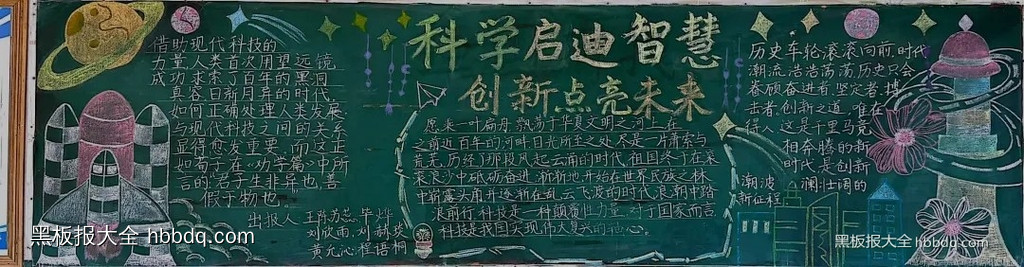 科学启迪智慧
创新点亮未来
借助现代科技的
力量,人类首次用望远镜
成功求索了百年的黑洞
真容日新月异的时代,
如何正确处理人类发展
与现代科技之间的关系
显得愈发重要,而这正
如荀子在《劝学篇》中所
言的:君子生非异也,善
假于物也
出报人:王肖苏蕊、毕烨
刘欣雨、刘赫炎
黄允沁、程语桐
愿乘一叶扁舟,飘荡于华夏文明之河上,在
之前近百年的河畔目光所至之处,尽是一片萧索与
荒芜,历经了那段风起云涌的时代,祖国终于在采
来浪沙中砥砺奋进,渐渐地,开始在世界民族之林
中崭露头角,并逐渐在乱云飞渡的时代浪潮中踏
浪前行,科技是一种颠覆性力量,对于国家而言
科技是我国实现伟大复兴的抱心。
历史车轮滚滚向前,时代
潮流浩浩荡荡,历史只会
眷顾奋进者,坚定者,搏
击者,创新之道,唯在
得人,这是千里马竞
相奔腾的新
时代,是创新
潮波澜壮阔的
新征程
黑板报大全 hbbdq.com
黑板报大全hbbdq.com